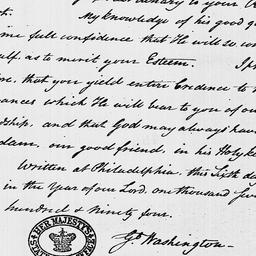 My knowledge of his good qu
me full confidence that He will so con
self, as to merit your Esteem.
that you yield entire Credence to
ances which He will bear to you of our
dship, and that God may always have
dam, our good friend, in his Holy ke
Written at Philadelphia, this Sixth da
in the Year of our Lord, one thousand seve
hundred & Ninety four
HER MAJESTY'S
Go. Washington